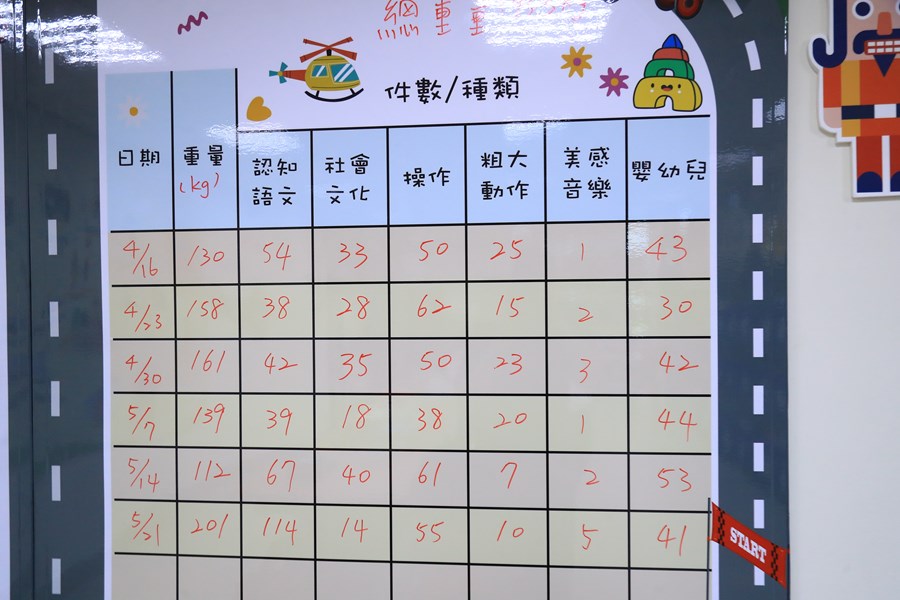 總重
件數/種類
日期 重量(kg) 認知語文 社會文化 操作 粗大動作 美感音樂 嬰幼兒
4/16 130 54 33 50 25 1 43
4/23 158 38 28 62 15 2 30
4/30 161 42 35 50 23 3 42
5/7 139 39 18 38 20 1 44
5/14 112 67 40 61 7 2 53
5/21 201 114 14 55 10 5 41
START